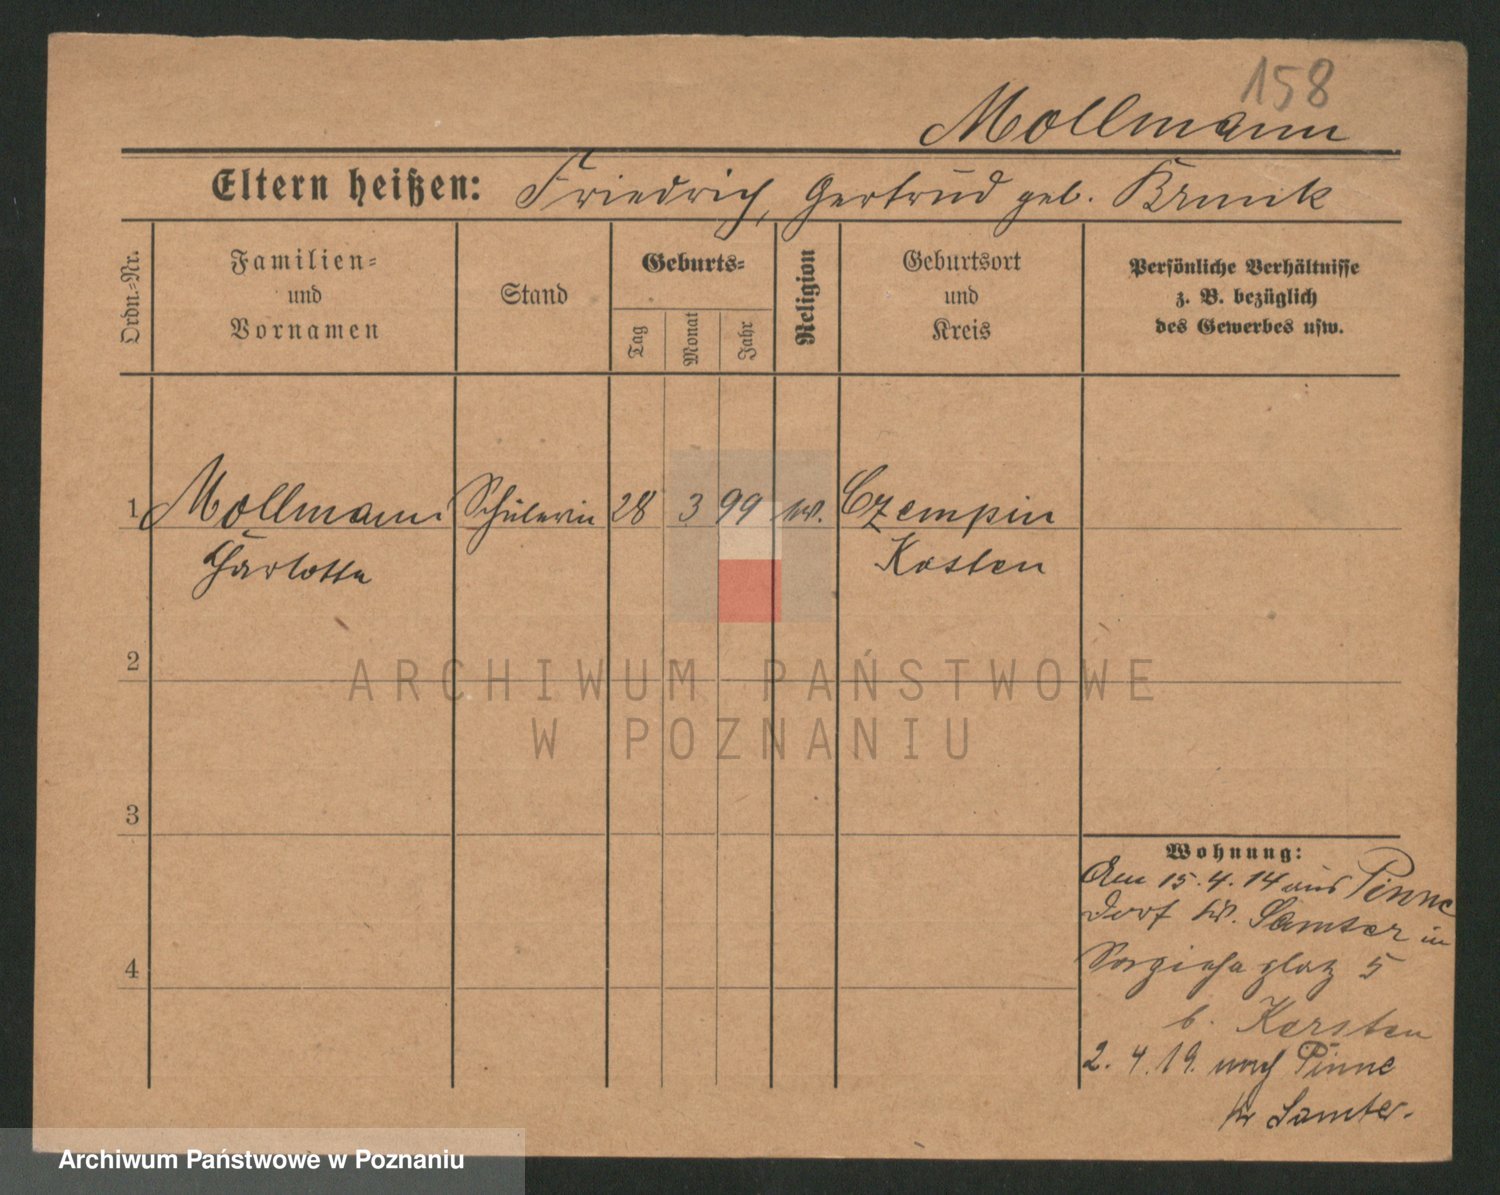 158
Mollmann
Eltern heißen: Friedrich, Gertrud geb. Brunk
Ordn.-Nr.
Familien-
und
Vornamen
Stand
Geburts-
Tag
Monat
Jahr
Religion
Geburtsort
und
Kreis
Persönliche Verhältnisse
z. B. bezüglich
des Gewerbes usw.
1 Mollmann Schülerin 28 3 99 Czempin
Charlotte Kosten
2
3
4
ARCHIWUM PAŃSTWOWE
W POZNANIU
Wohnung:
Am 15.4.14 aus Pinne
Dorf Kr. Samter in
platz 5
b. Kersten
2.4.19. nach Pinne
Kr Samter.
Archiwum Państwowe w Poznaniu